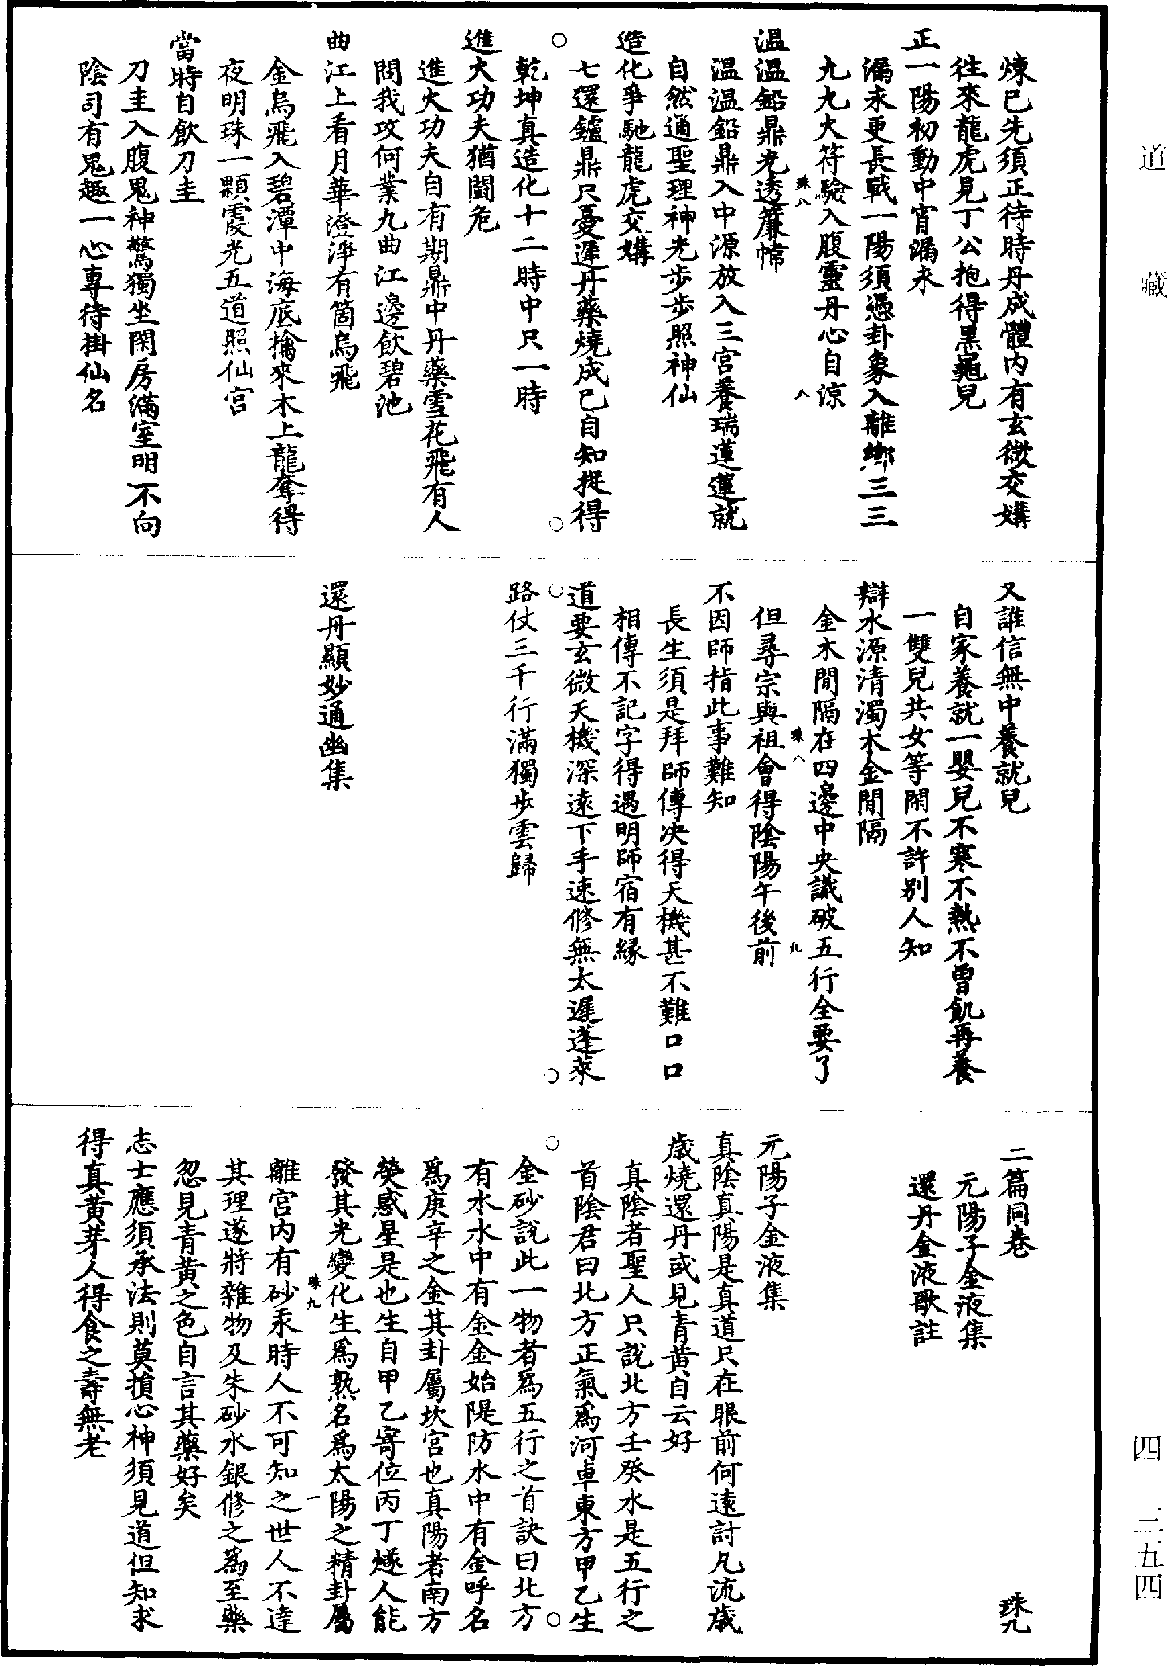 道藏
四
三五四
煉已先須正待時丹成體內有玄微交媾
往來龍虎見丁公抱得黑龜兒
正一陽初動中宵漏永
漏永更長戰一陽須憑卦象入離鄉三三
九九火符驗入腹靈丹心自涼
珠八
八
温温鉛鼎光透簾幃
温温鉛鼎入中源放入三宮養瑞蓮蓮就
自然通聖理神光步步照神仙
造化爭馳龍虎交媾
七還鑪鼎只憂遲丹藥燒成已自知捉得
乾坤真造化十二時中只一時
進火功夫猶鬪危
進火功夫自有期鼎中丹藥雪花飛有人
問我攻何業九曲江邊飲碧池
曲江上看月華澄淨有箇烏飛
金烏飛入碧潭中海底擒來木上龍奪得
夜明珠一顆霞光五道照仙宮
當時自飲刀圭
刀圭入腹鬼神驚獨坐閑房滿室明不向
陰司有鬼趣一心專待掛仙名
又誰信無中養就兒
自家養就一嬰兒不寒不熱不曾飢再養
一雙兒共女等閑不許別人知
辯水源清濁木金間隔
金木間隔在四邊中央識破五行全要了
珠八
九
但尋宗與祖會得陰陽午後前
不因師指此事難知
長生須是拜師傳決得天機甚不難口口
相傳不記字得遇明師宿有緣
道要玄微天機深遠下手速修無太遲蓬萊
路仗三千行滿獨步雲歸
還丹顯妙通幽集
二篇同卷
珠九
元陽子金液集
還丹金液歌註
元陽子金液集
真陰真陽是真道只在眼前何遠討凡流歲
歲燒還丹或見青黃自云好
真陰者聖人只說北方壬癸水是五行之
首陰君曰北方正氣為河車東方甲乙生
金砂說此一物者為五行之首訣曰北方
有水水中有金金始隄防水中有金呼名
為庚辛之金其卦屬坎宮也真陽者南方
熒惑星是也生自甲乙寄位丙丁燧人能
發其光變化生為熟名為太陽之精卦屬
珠九
一
離宮內有砂汞時人不可知之世人不達
其理遂將雜物及朱砂水銀修之為至藥
忽見青黃之色自言其藥好矣
志士應須承法則莫損心神須見道但知求
得真黃芽人得食之壽無老